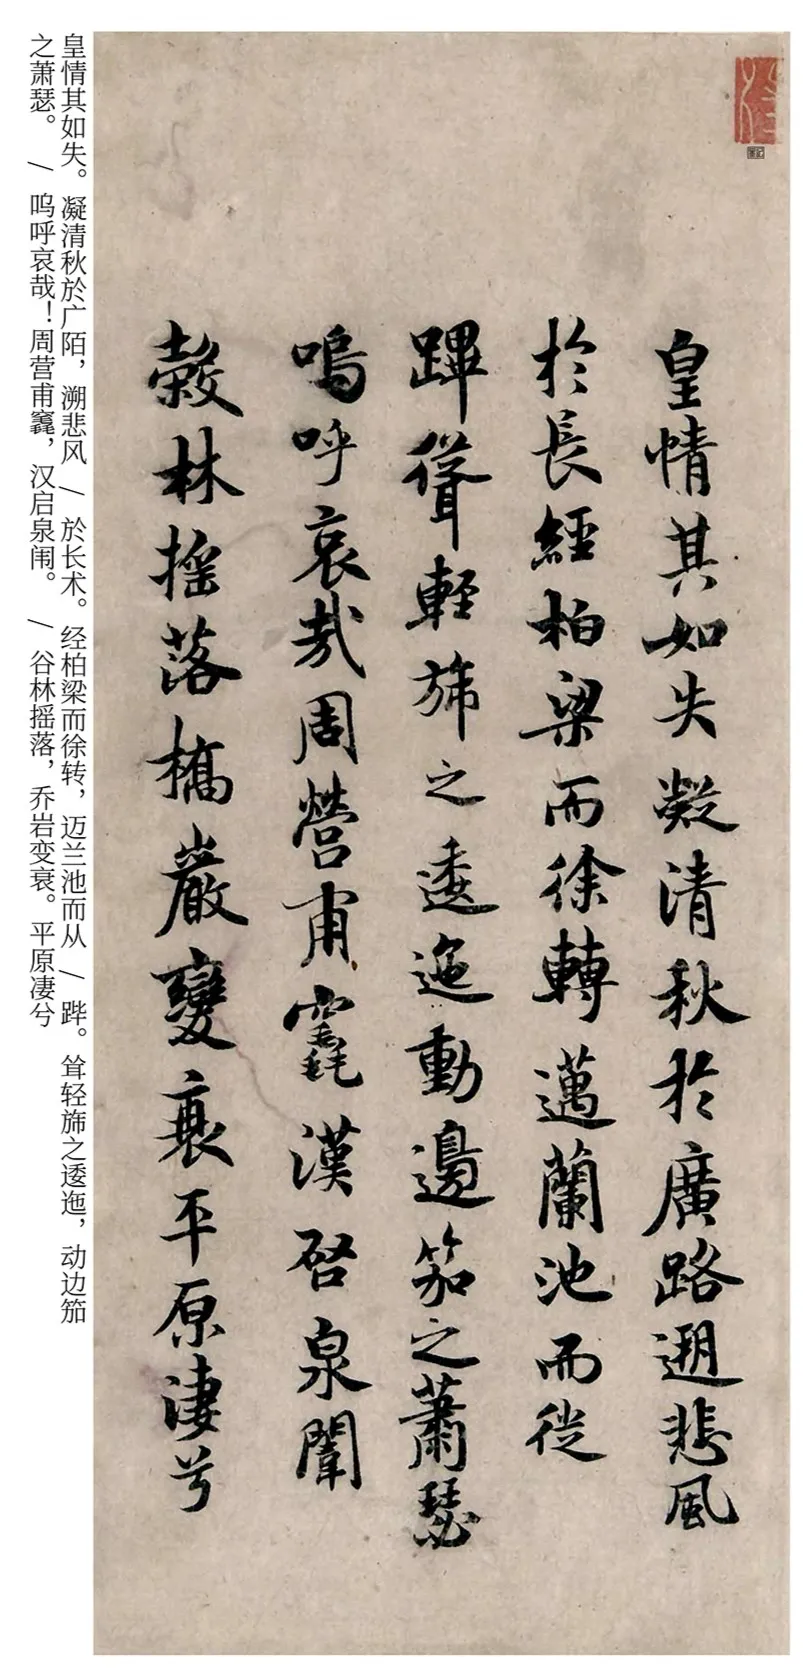 皇情其如失凝清秋於廣路遡悲風
於長經柏梁而徐轉邁蘭池而從
蹕聳輕旆之逶迤動邊笳之蕭瑟
嗚呼哀哉周營甫竁漢啓泉闈
穀林搖落橋巖變衰平原淒兮
皇情其如失。凝清秋於广陌，溯悲风 / 於长术。经柏梁而徐转，迈兰池而从 / 跸。耸轻旆之逶迤，动边笳
之萧瑟。 / 呜呼哀哉！周营甫竁，汉启泉闹。 / 谷林摇落，乔岩变衰。平原凄兮